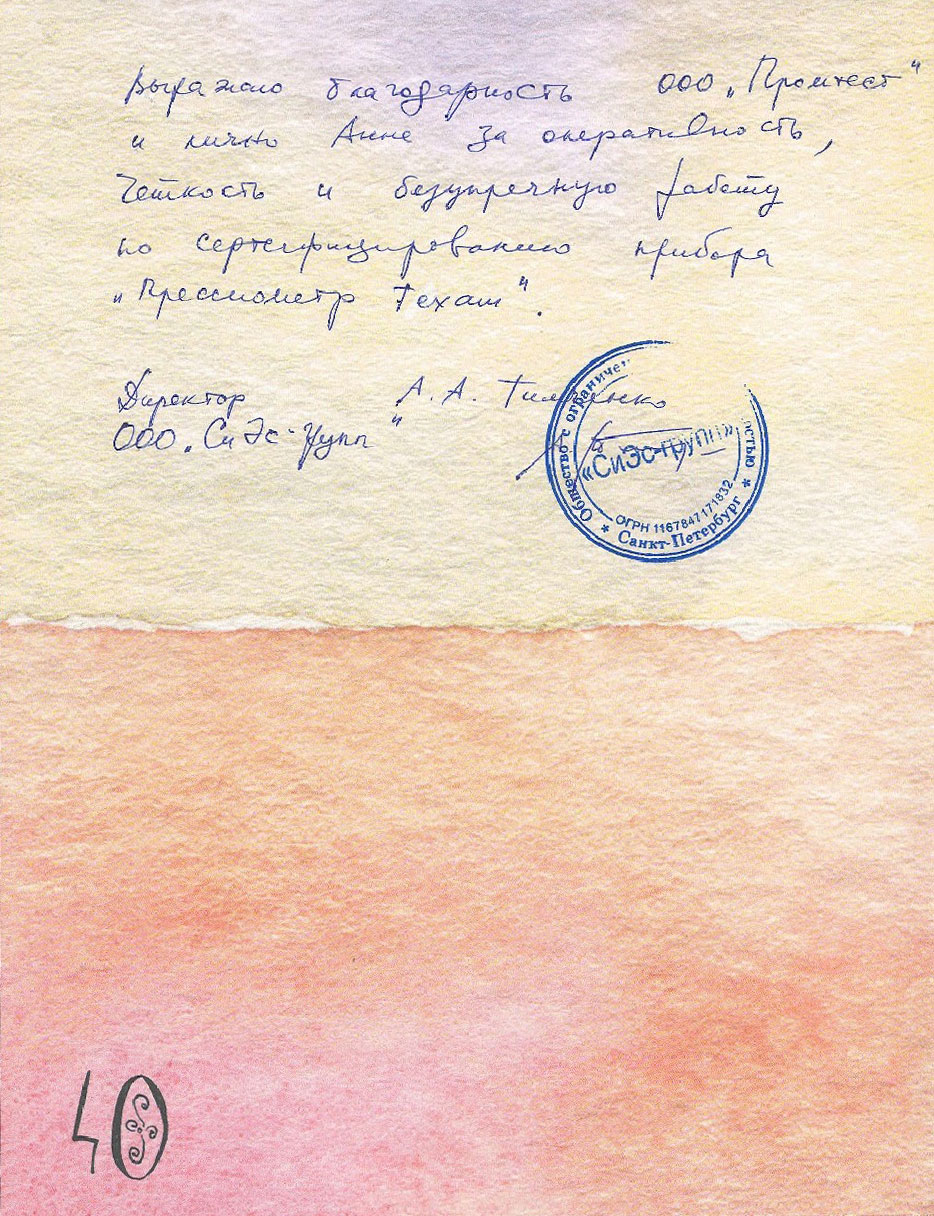 Выражаю благодарность ООО „Промтест"
и лично Анне за оперативность,
четкость и безупречную работу
по сертифицированию прибора
„Прессиометр Техаш".
Директор А. А. Тимченко
ООО „СиЭс-групп"
Общество с ограничен остью
«СиЭс-групп»
ОГРН 1167847171832
* Санкт-Петербург *
40